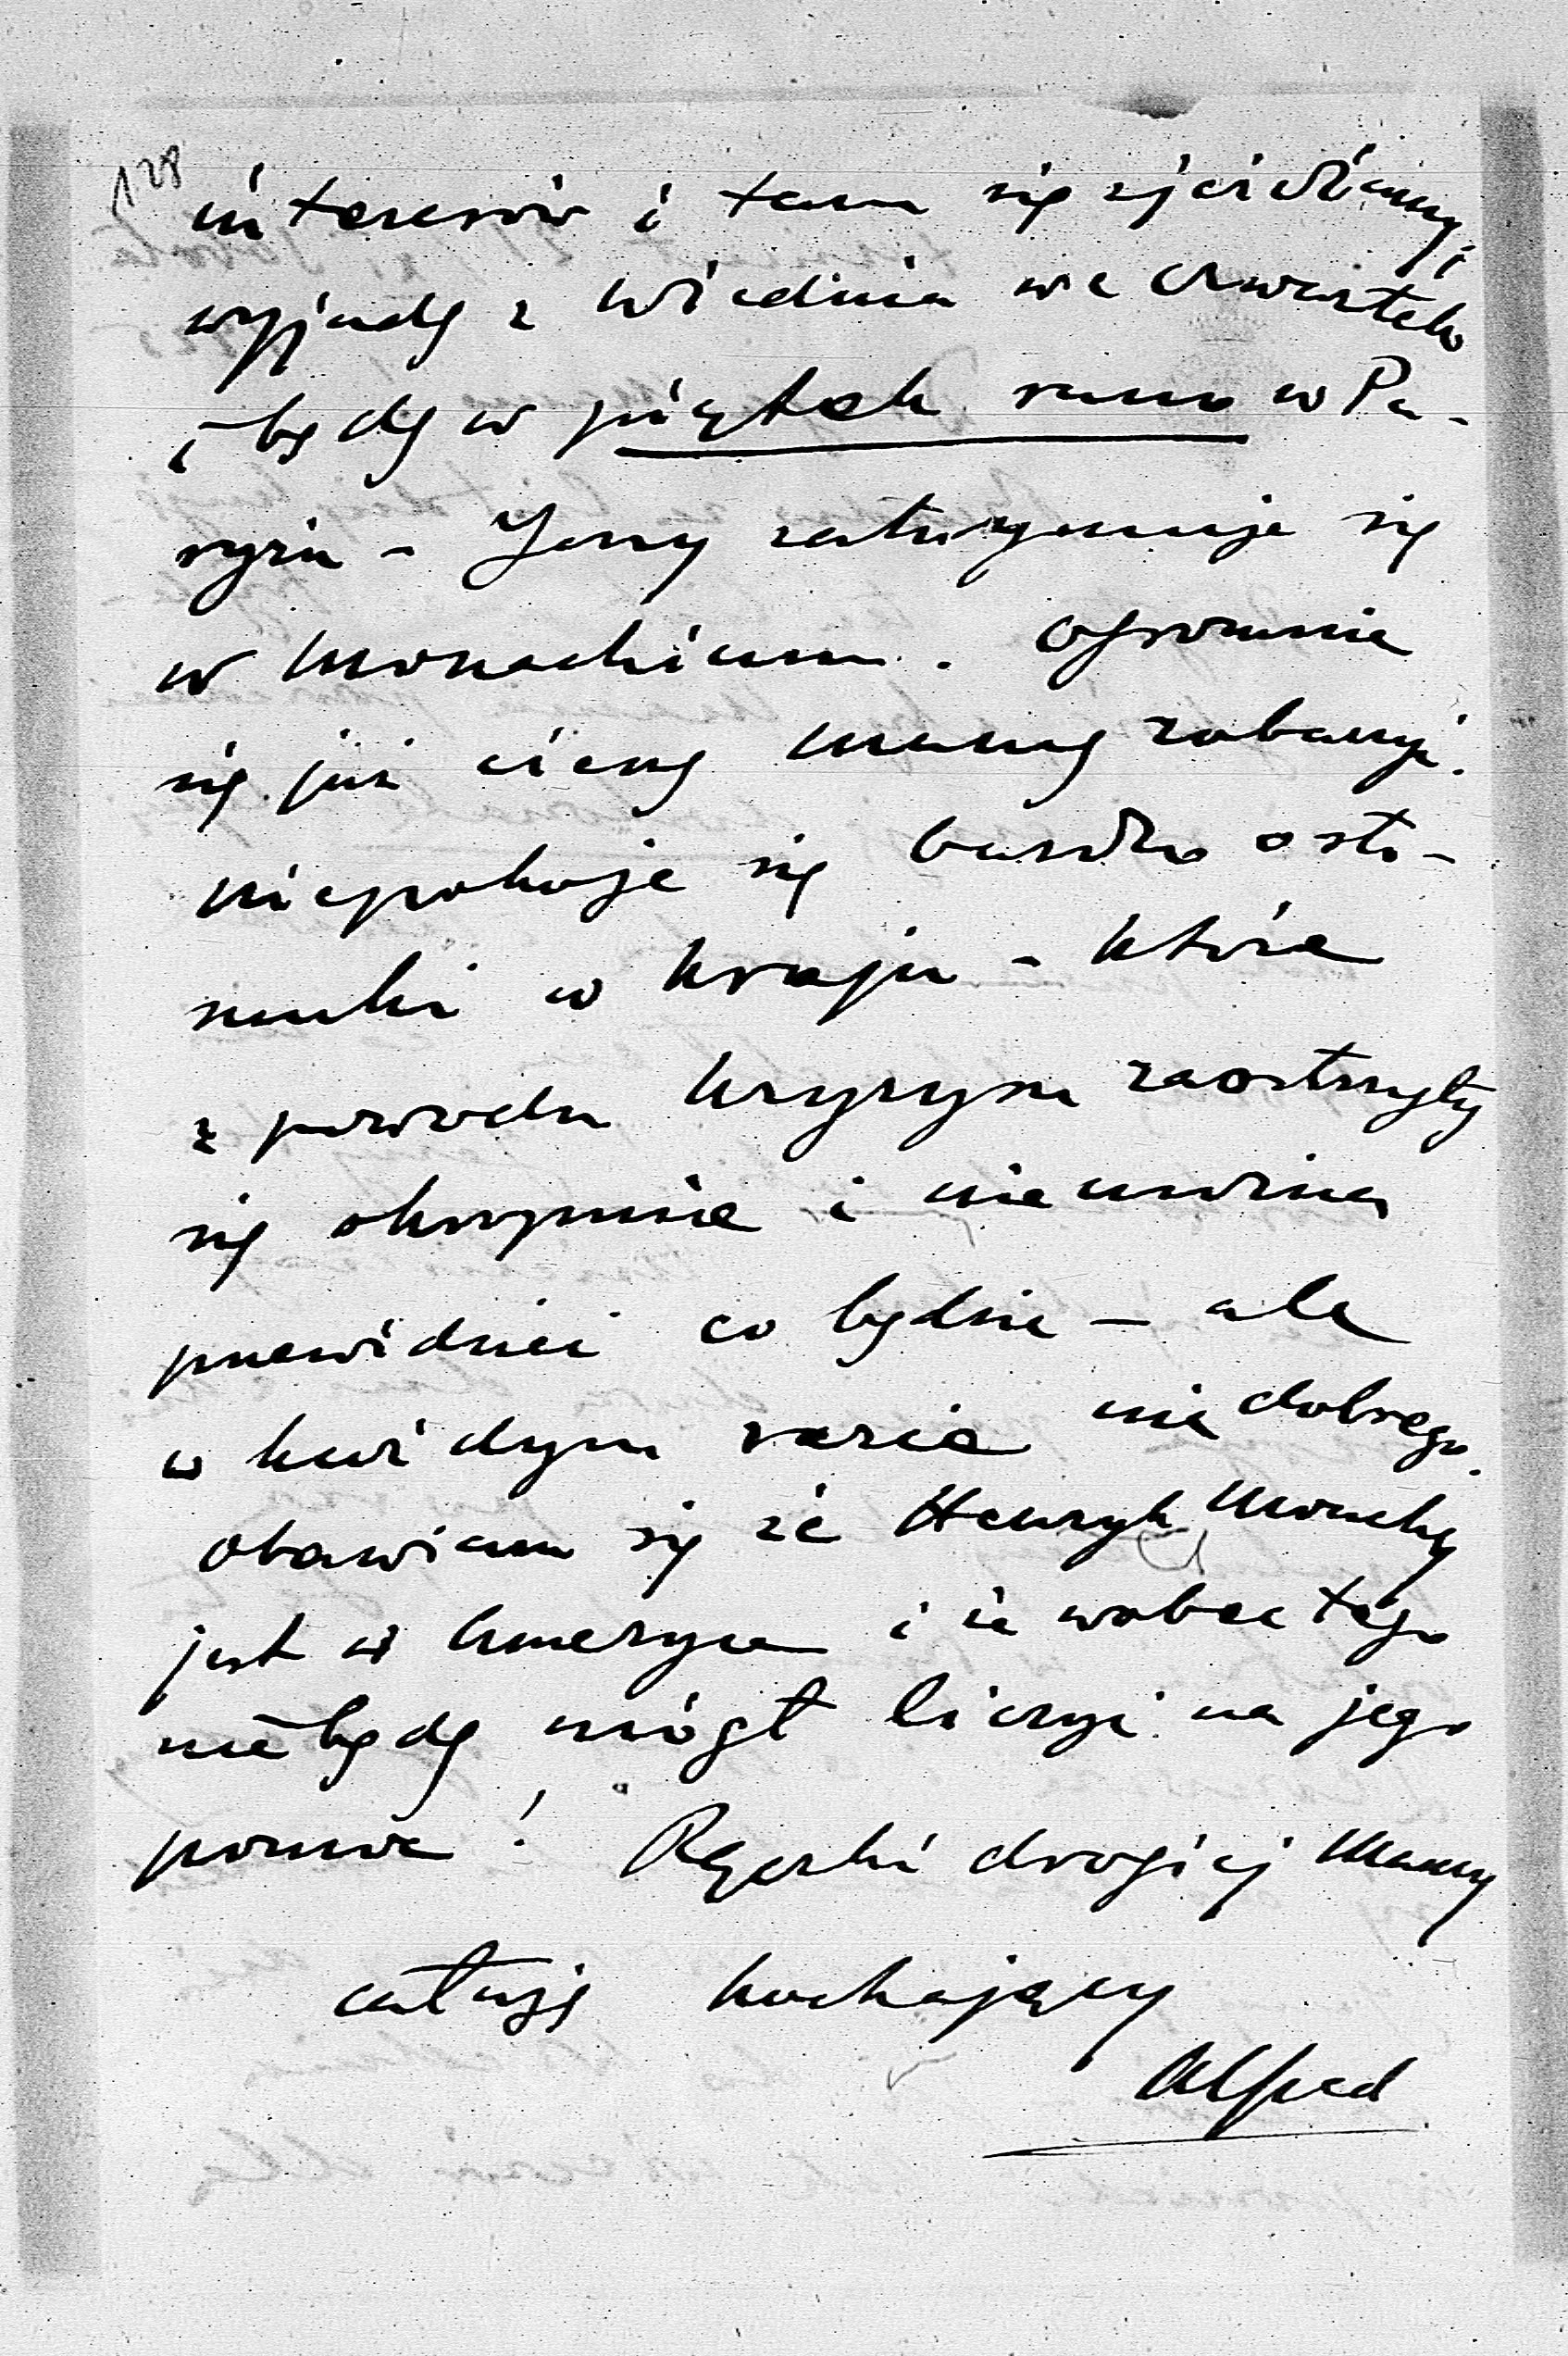 128
interesów i tam się zjeździmy i
wyjadę z Wiednia we czwartek
i będę w piątek rano w Pa-
ryżu - Jerzy zatrzymuje się
w Monachium. Ogromnie
się już cieszę Mamę zobaczyć.
niepokoję się bardzo o sto-
sunki w kraju - które
z powodu kryzysu zaostrzyły
się okropnie i nie można
przewidzieć co będzie - ale
w każdym razie nic dobrego.
obawiam się że Henryk
jest w Ameryce i że wobec tego
nie będę mógł liczyć na jego
pomoc! Rączki drogiej Mamy
całuję kochający
Alfred